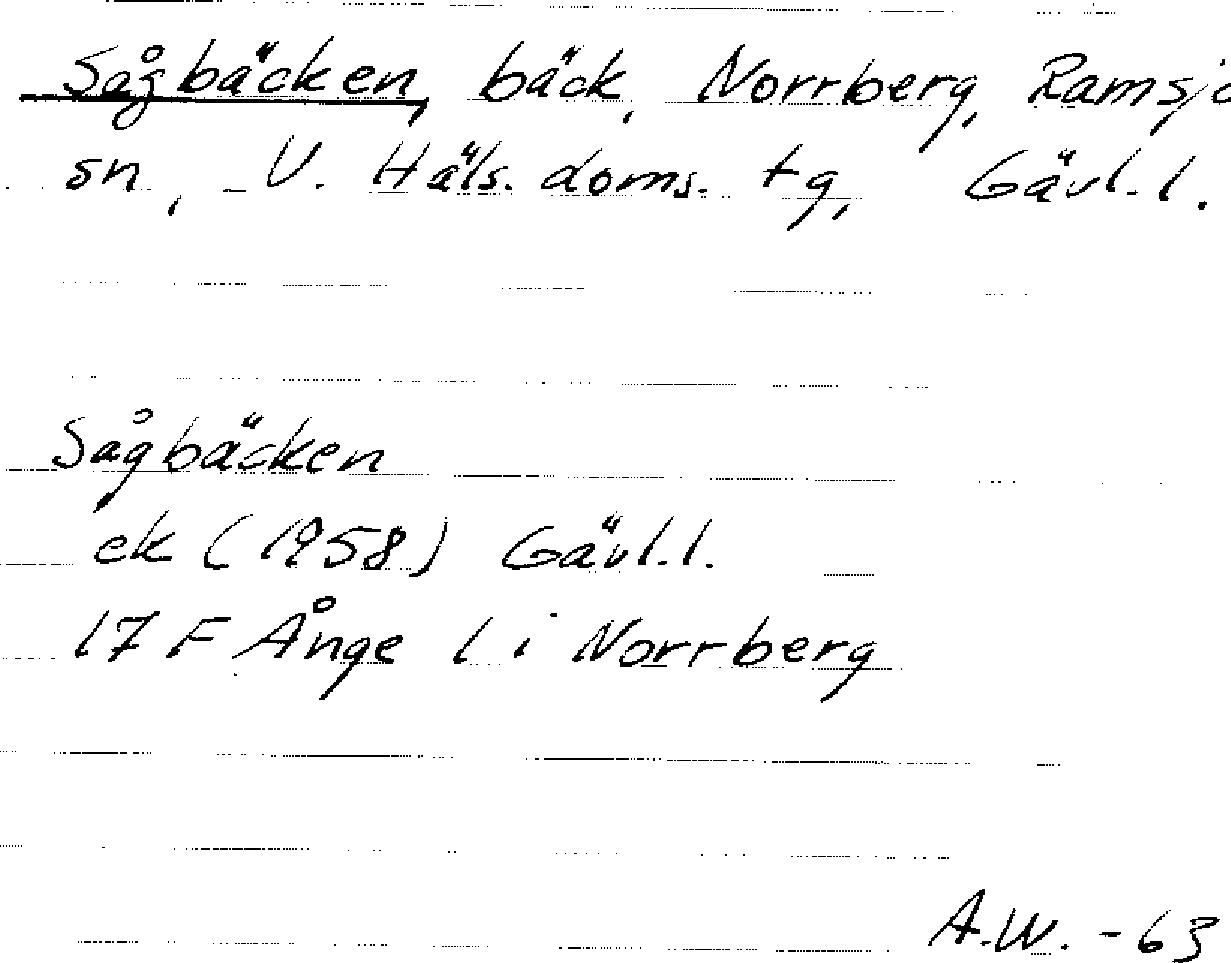 Sågbäcken, bäck, Norrberg, Ramsjö
sn, V. Häls. doms. tg, Gävl. l.
Sågbäcken
ek (1958) Gävl. l.
17 F Ånge l i Norrberg
A.W. -63